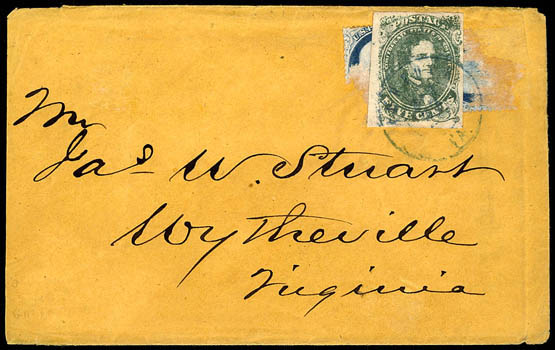 U.S. P
POSTAGE
FIVE CENTS
VA.
Mr
Jas W. Stuart
Wytheville
Virginia